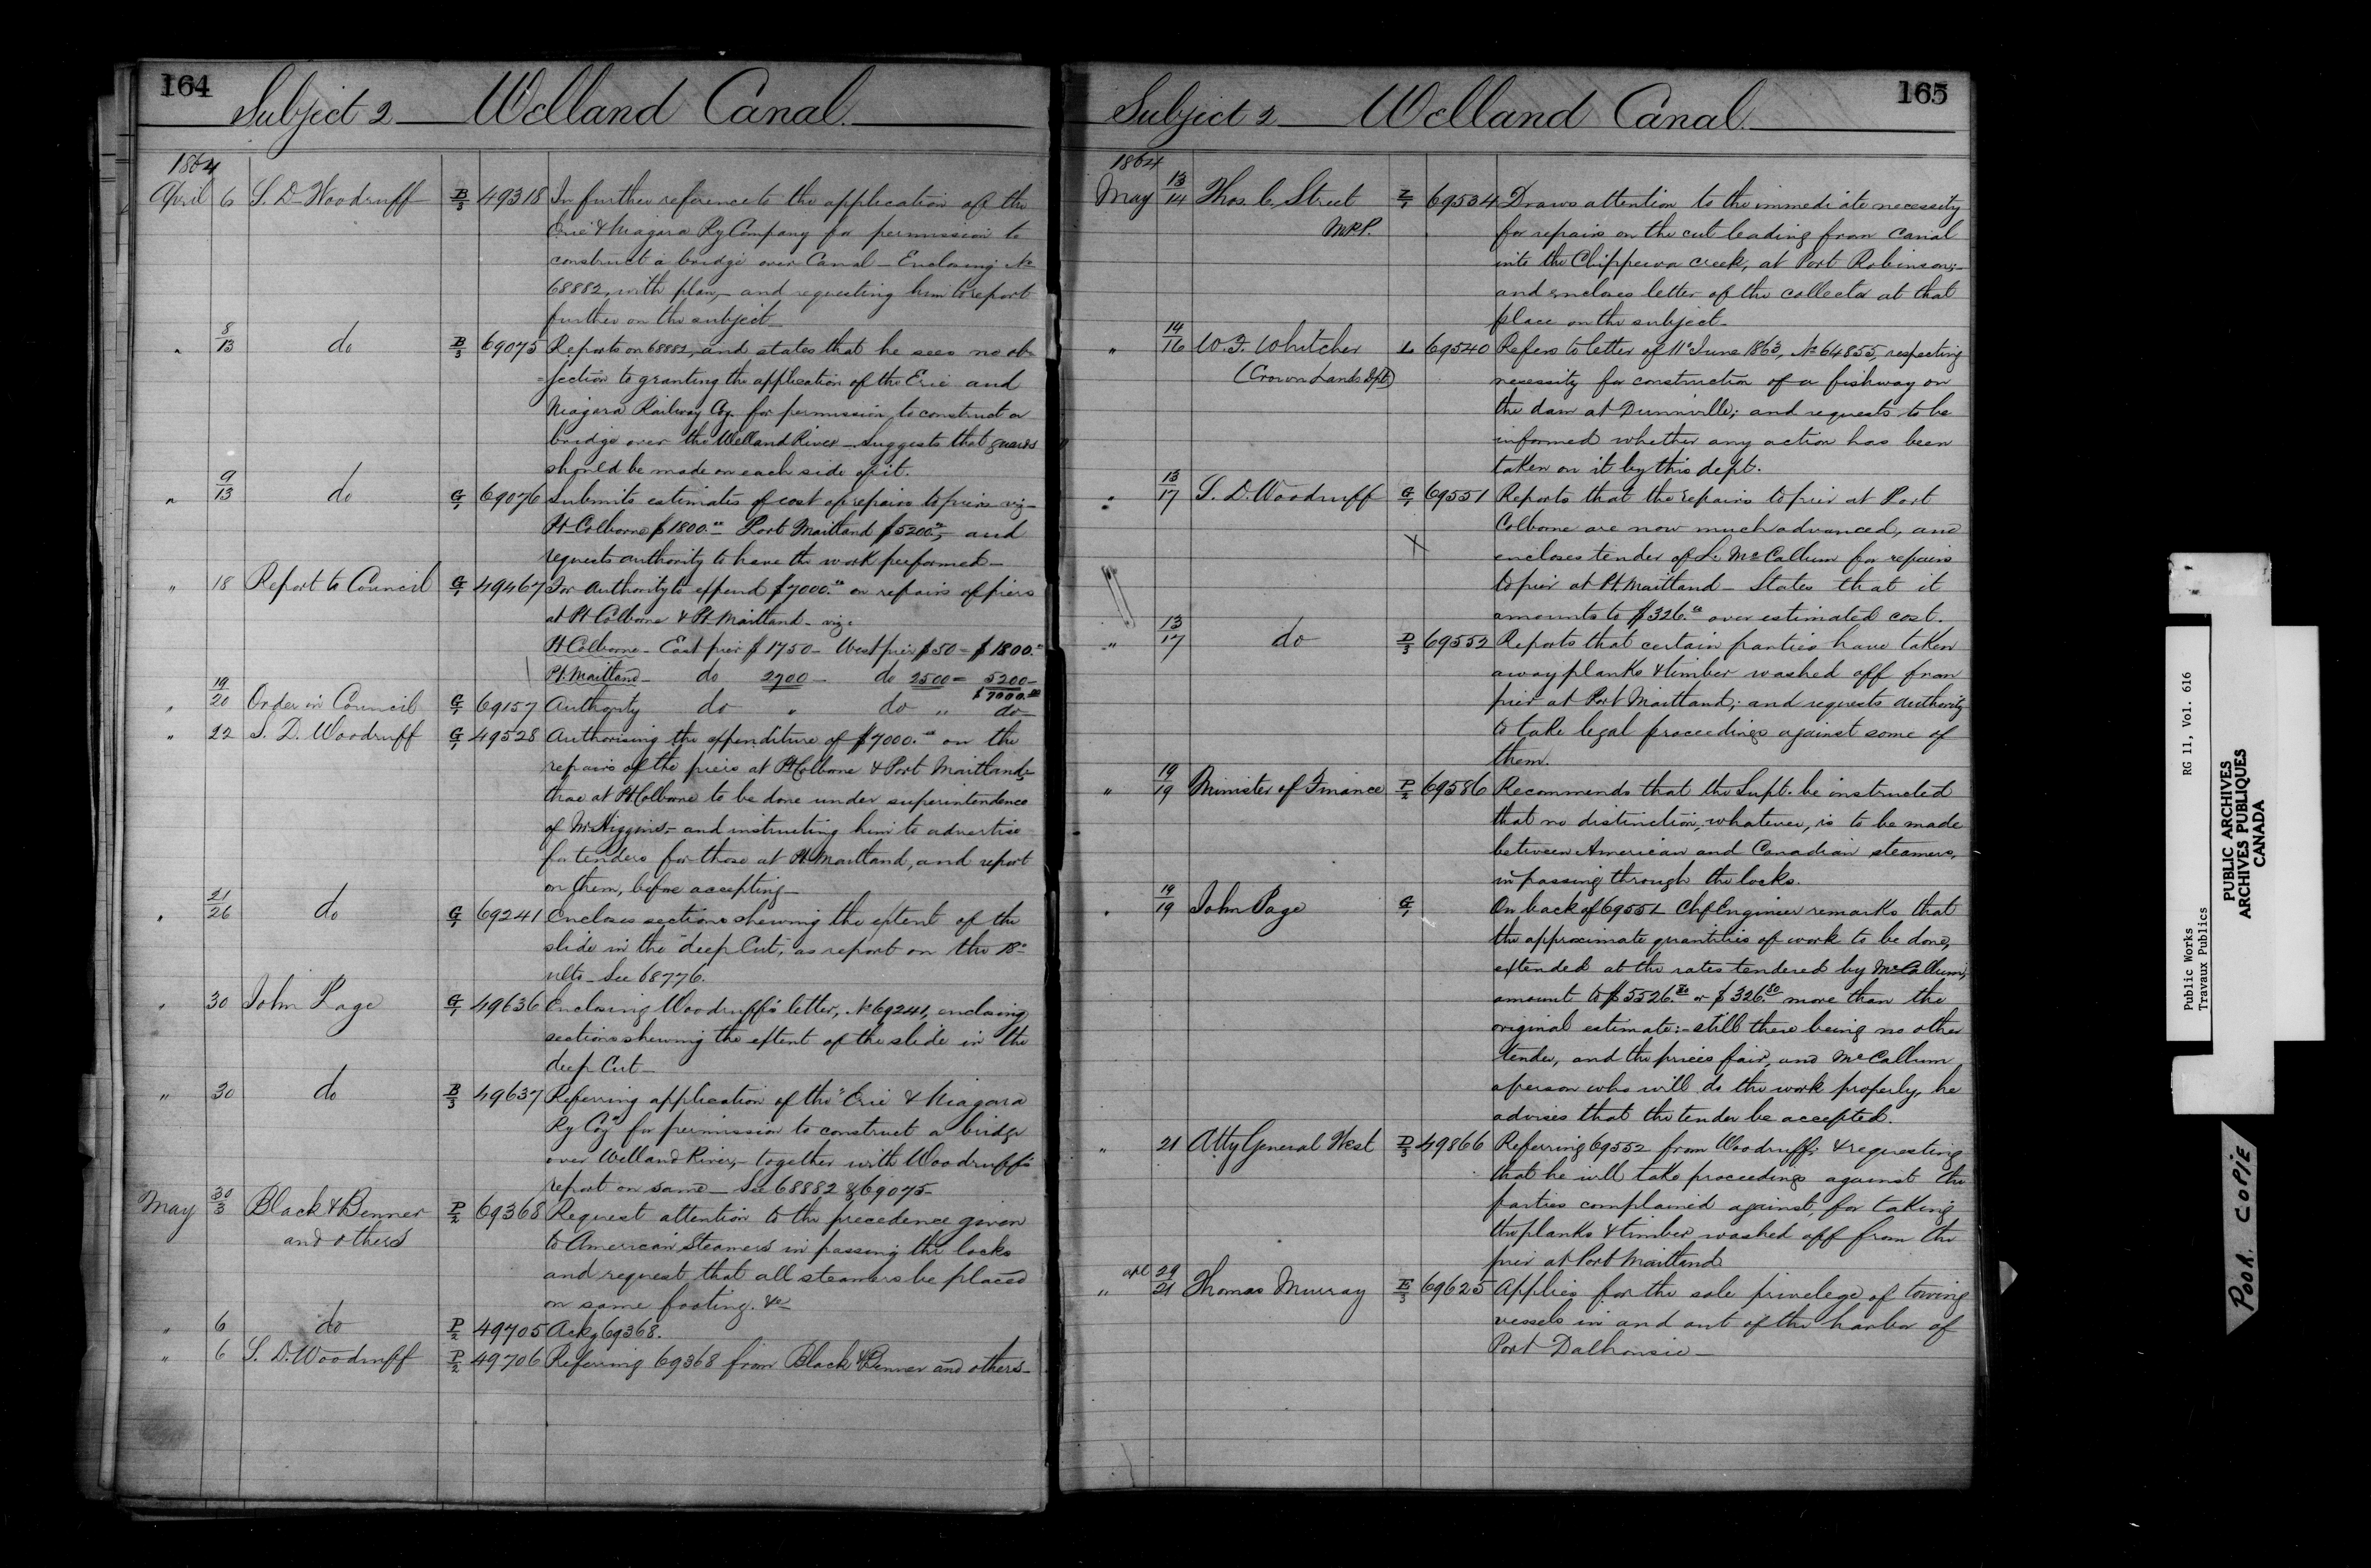 164
Subject 2 Welland Canal.
1864
April 6 S. D. Woodruff B/3 49318 In further reference to the application of the
Erie & Niagara Ry Company for permission to
construct a bridge over Canal - Enclosing No
68882, with plan, - and requesting him to report
further on the subject -
" 8/13 do B/3 69075 Reports on 68882, and states that he sees no ob-
=jection to granting the application of the Erie and
Niagara Railway Coy. for permission to construct a
bridge over the Welland River - Suggests that guards
should be made on each side of it.
" 9/13 do G/1 69076 Submits estimates of cost of repairs to piers viz -
Pt Colborne $1800.00 - Port Maitland $5200.00, - and
requests authority to have the work performed -
" 18 Report to Council G/1 49467 For authority to expend $7000.00 on repairs of piers
at Pt Colborne & Pt Maitland - viz:
Pt Colborne - East pier $1750 - West pier $50 = $1800.00
Pt. Maitland - do 2700 - do 2500 = 5200 -
$7000.00
" 19/20 Order in Council G/1 69157 Authority do " do " do -
" 22 S. D. Woodruff G/1 49528 Authorising the expenditure of $7000.00 on the
repairs of the piers at Pt Colborne & Port Maitland; -
those at Pt Colborne to be done under superintendence
of Mr Higgins, - and instructing him to advertise
for tenders for those at Pt Maitland, and report
on them, before accepting -
" 21/26 do G/1 69241 Encloses sections shewing the extent of the
slide in the "deep Cut", as report on the 18th
ulto - See 68776.
" 30 John Page G/1 49636 Enclosing Woodruff's letter, No 69241, enclosing
sections shewing the extent of the slide in the
deep Cut -
" 30 do B/3 49637 Referring application of the "Erie & Niagara
Ry Coy" for permission to construct a bridge
over Welland River, - together with Woodruff's
report on same - See 68882 & 69075 -
May 30/3 Black & Benner P/2 69368 Request attention to the precedence given
and others to American Steamers in passing the locks
and request that all steamers be placed
on same footing. &c -
" 6 do P/2 49705 Ackg 69368.
" 6 S. D. Woodruff P/2 49706 Referring 69368 from Black & Benner and others -
165
Subject 2 Welland Canal.
1864
May 13/14 Thos. C. Street 69534 Draws attention to the immediate necessity
M.P.P. for repairs on the cut leading from Canal
into the Chippewa creek, at Port Robinson; -
and encloses letter of the collector at that
place on the subject -
" 14/16 W. F. Whitcher L 69540 Refers to letter of 11th June 1863, No 64855, respecting
(Crown Lands Dpt) necessity for construction of a fishway on
the dam at Dunnville; and requests to be
informed whether any action has been
taken on it by this dept.
" 13/17 S. D. Woodruff G/1 69551 Reports that the repairs to pier at Port
Colborne are now much advanced, and
X encloses tender of L. McCallum for repairs
to pier at Pt. Maitland - States that it
amounts to $326.00 over estimated cost.
" 13/17 do D/3 69552 Reports that certain parties have taken
away planks & timber washed off from
pier at Port Maitland; and requests authority
to take legal proceedings against some of
them.
" 19/19 Minister of Finance P/2 69586 Recommends that the Supt. be instructed
that no distinction, whatever, is to be made
between American and Canadian steamers,
in passing through the locks.
" 19/19 John Page G/1 On back of 69551 Chf Engineer remarks that
the approximate quantities of work to be done,
extended at the rates tendered by McCallum,
amount to $5526.80 or $326.80 more than the
original estimate: - still there being no other
tender, and the prices fair, and McCallum
a person who will do the work properly, he
advises that the tender be accepted.
" 21 Atty General West D/3 49866 Referring 69552 from Woodruff; & requesting
that he will take proceedings against the
parties complained against, for taking
the planks & timber washed off from the
pier at Port Maitland
" apl 29/21 Thomas Murray E/3 69625 Applies for the sole privelege of towing
vessels in and out of the harbor of
Port Dalhousie -
Public Works RG 11, Vol. 616
Travaux Publics
PUBLIC ARCHIVES
ARCHIVES PUBLIQUES
CANADA
POOR COPIE